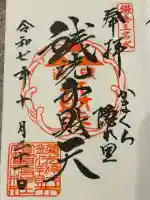 鎌倉五名水
奉拝
かまくら
隠れ里
銭洗弁財天
令和七年十月